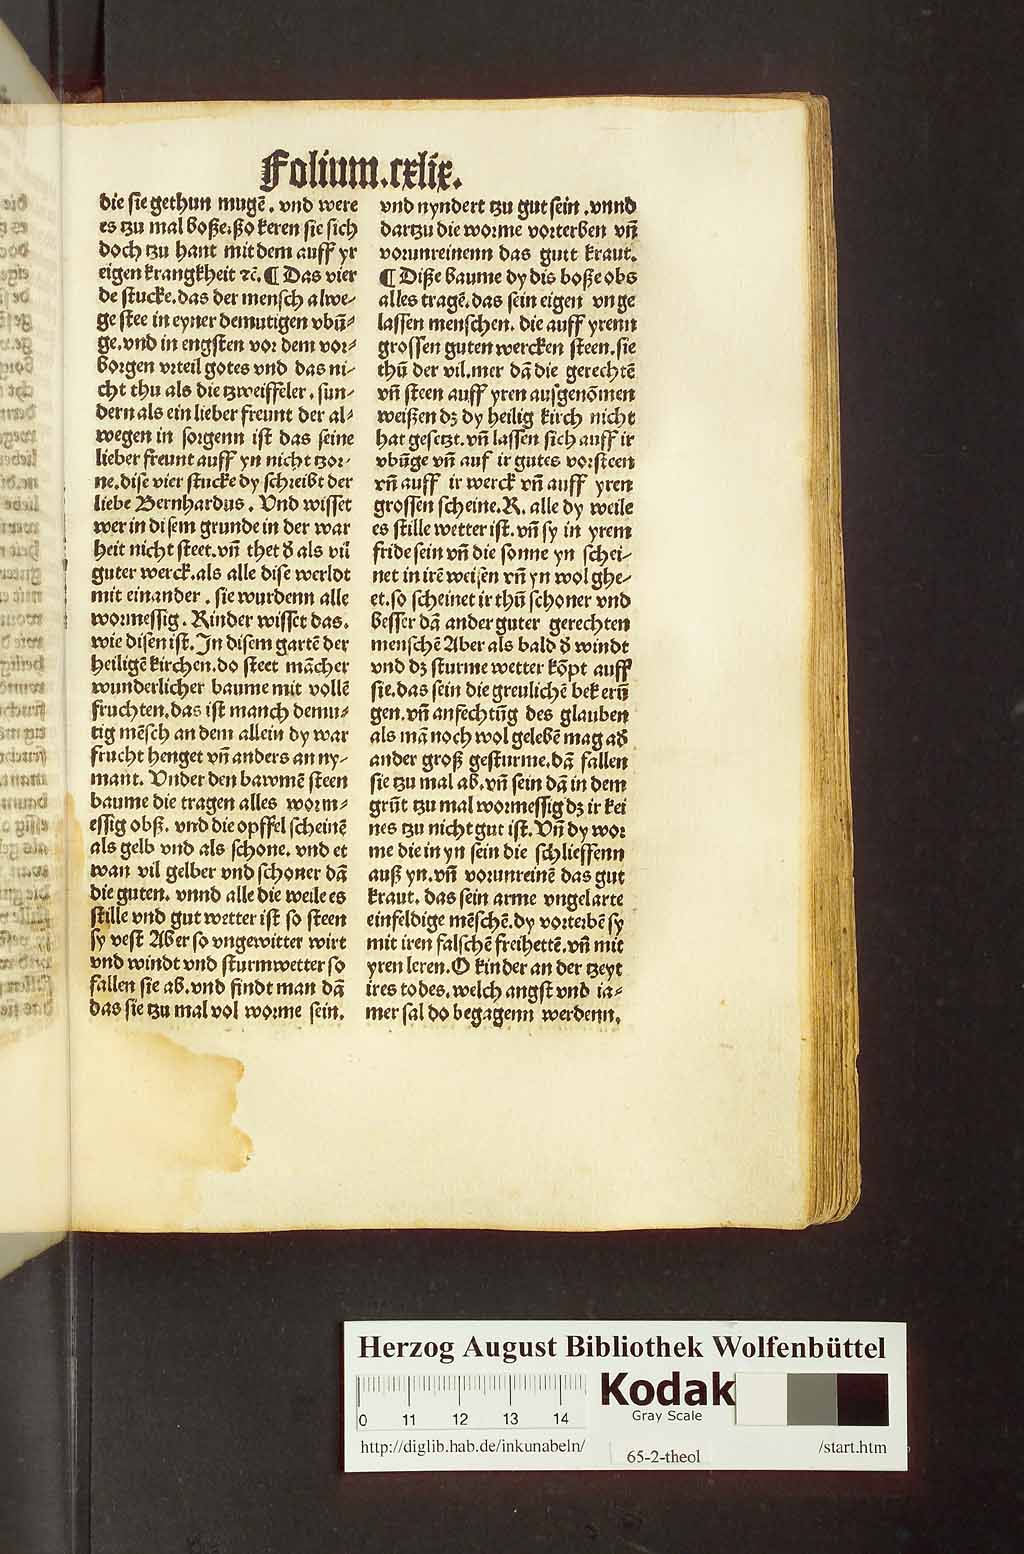 Folium.cxlix.
die sie gethun mugē. vnd were
es tzu mal boße:ßo keren sie sich
doch tzu hant mit dem auff yr
eigen krangkheit ⁊c̄. ¶ Das vier
de stucke. das der mensch alwe-
ge stee in eyner demutigen vbū-
ge. vnd in engsten vor dem vor-
borgen vrteil gotes vnd das ni-
cht thu als die tzweiffeler. sun-
dern als ein lieber freunt der al-
wegen in sorgenn ist das seine
lieber freunt auff yn nicht tzor-
ne. dise vier stucke dy schreibt der
liebe Bernhardus. Vnd wisset
wer in disem grunde in der war
heit nicht steet. vn̄ thet d̛ als vil
guter werck. als alle dise werldt
mit einander. sie wurdenn alle
wormessig. Kinder wisset das.
wie disen ist. Jn disem gartē der
heiligē kirchen. do steet mācher
wunderlicher baume mit vollē
fruchten. das ist manch demu-
tig mēsch an dem allein dy war
frucht henget vn̄ anders an ny-
mant. Vnder den bawmē steen
baume die tragen alles worm-
essig obß. vnd die opffel scheinē
als gelb vnd als schone. vnd et
wan vil gelber vnd schoner dā
die guten. vnnd alle die weile es
stille vnd gut wetter ist so steen
sy vest Aber so vngewitter wirt
vnd windt vnd sturmwetter so
fallen sie ab. vnd findt man dā
das sie tzu mal vol worme sein.
vnd nyndert tzu gut sein. vnnd
dartzu die worme vorterben vn̄
vorunreinenn das gutt kraut.
¶ Diße baume dy dis boße obs
alles tragē. das sein eigen vnge
lassen menschen. die auff yrenn
grossen guten wercken steen. sie
thū der vil. mer dā die gerechtē
vn̄ steen auff yren ausgenōmen
weißen dꝫ dy heilig kirch nicht
hat gesetzt. vn̄ lassen sich auff ir
vbūge vn̄ auf ir gutes vorsteen
vn̄ auff ir werck vn̄ auff yren
grossen scheine. K. alle dy weile
es stille wetter ist. vn̄ sy in yrem
fride sein vn̄ die sonne yn schei-
net in irē weisen vn̄ yn wol ghe-
et. so scheinet ir thū schoner vnd
besser dā ander guter gerechten
menschē Aber als bald d̛ windt
vnd dꝫ sturme wetter kōpt auff
sie. das sein die greulichē bekerū
gen. vn̄ anfechtūg des glauben
als mā noch wol gelebē mag ad̛
ander groß gesturme. dā fallen
sie tzu mal ab. vn̄ sein dā in dem
grūt tzu mal wormessig dꝫ ir kei
nes tzu nicht gut ist. Vn̄ dy wor
me die in yn sein die schlieffenn
auß yn. vn̄ vorunreinē das gut
kraut. das sein arme vngelarte
einfeldige mēschē. dy vorterbē sy
mit iren falschē freihettē. vn̄ mit
yren leren. O kinder an der tzeyt
ires todes. welch angst vnd ia-
mer sal do begagenn werdenn.
Herzog August Bibliothek Wolfenbüttel
Kodak
Gray Scale
0 11 12 13 14
http://diglib.hab.de/inkunabeln/
65-2-theol
/start.htm